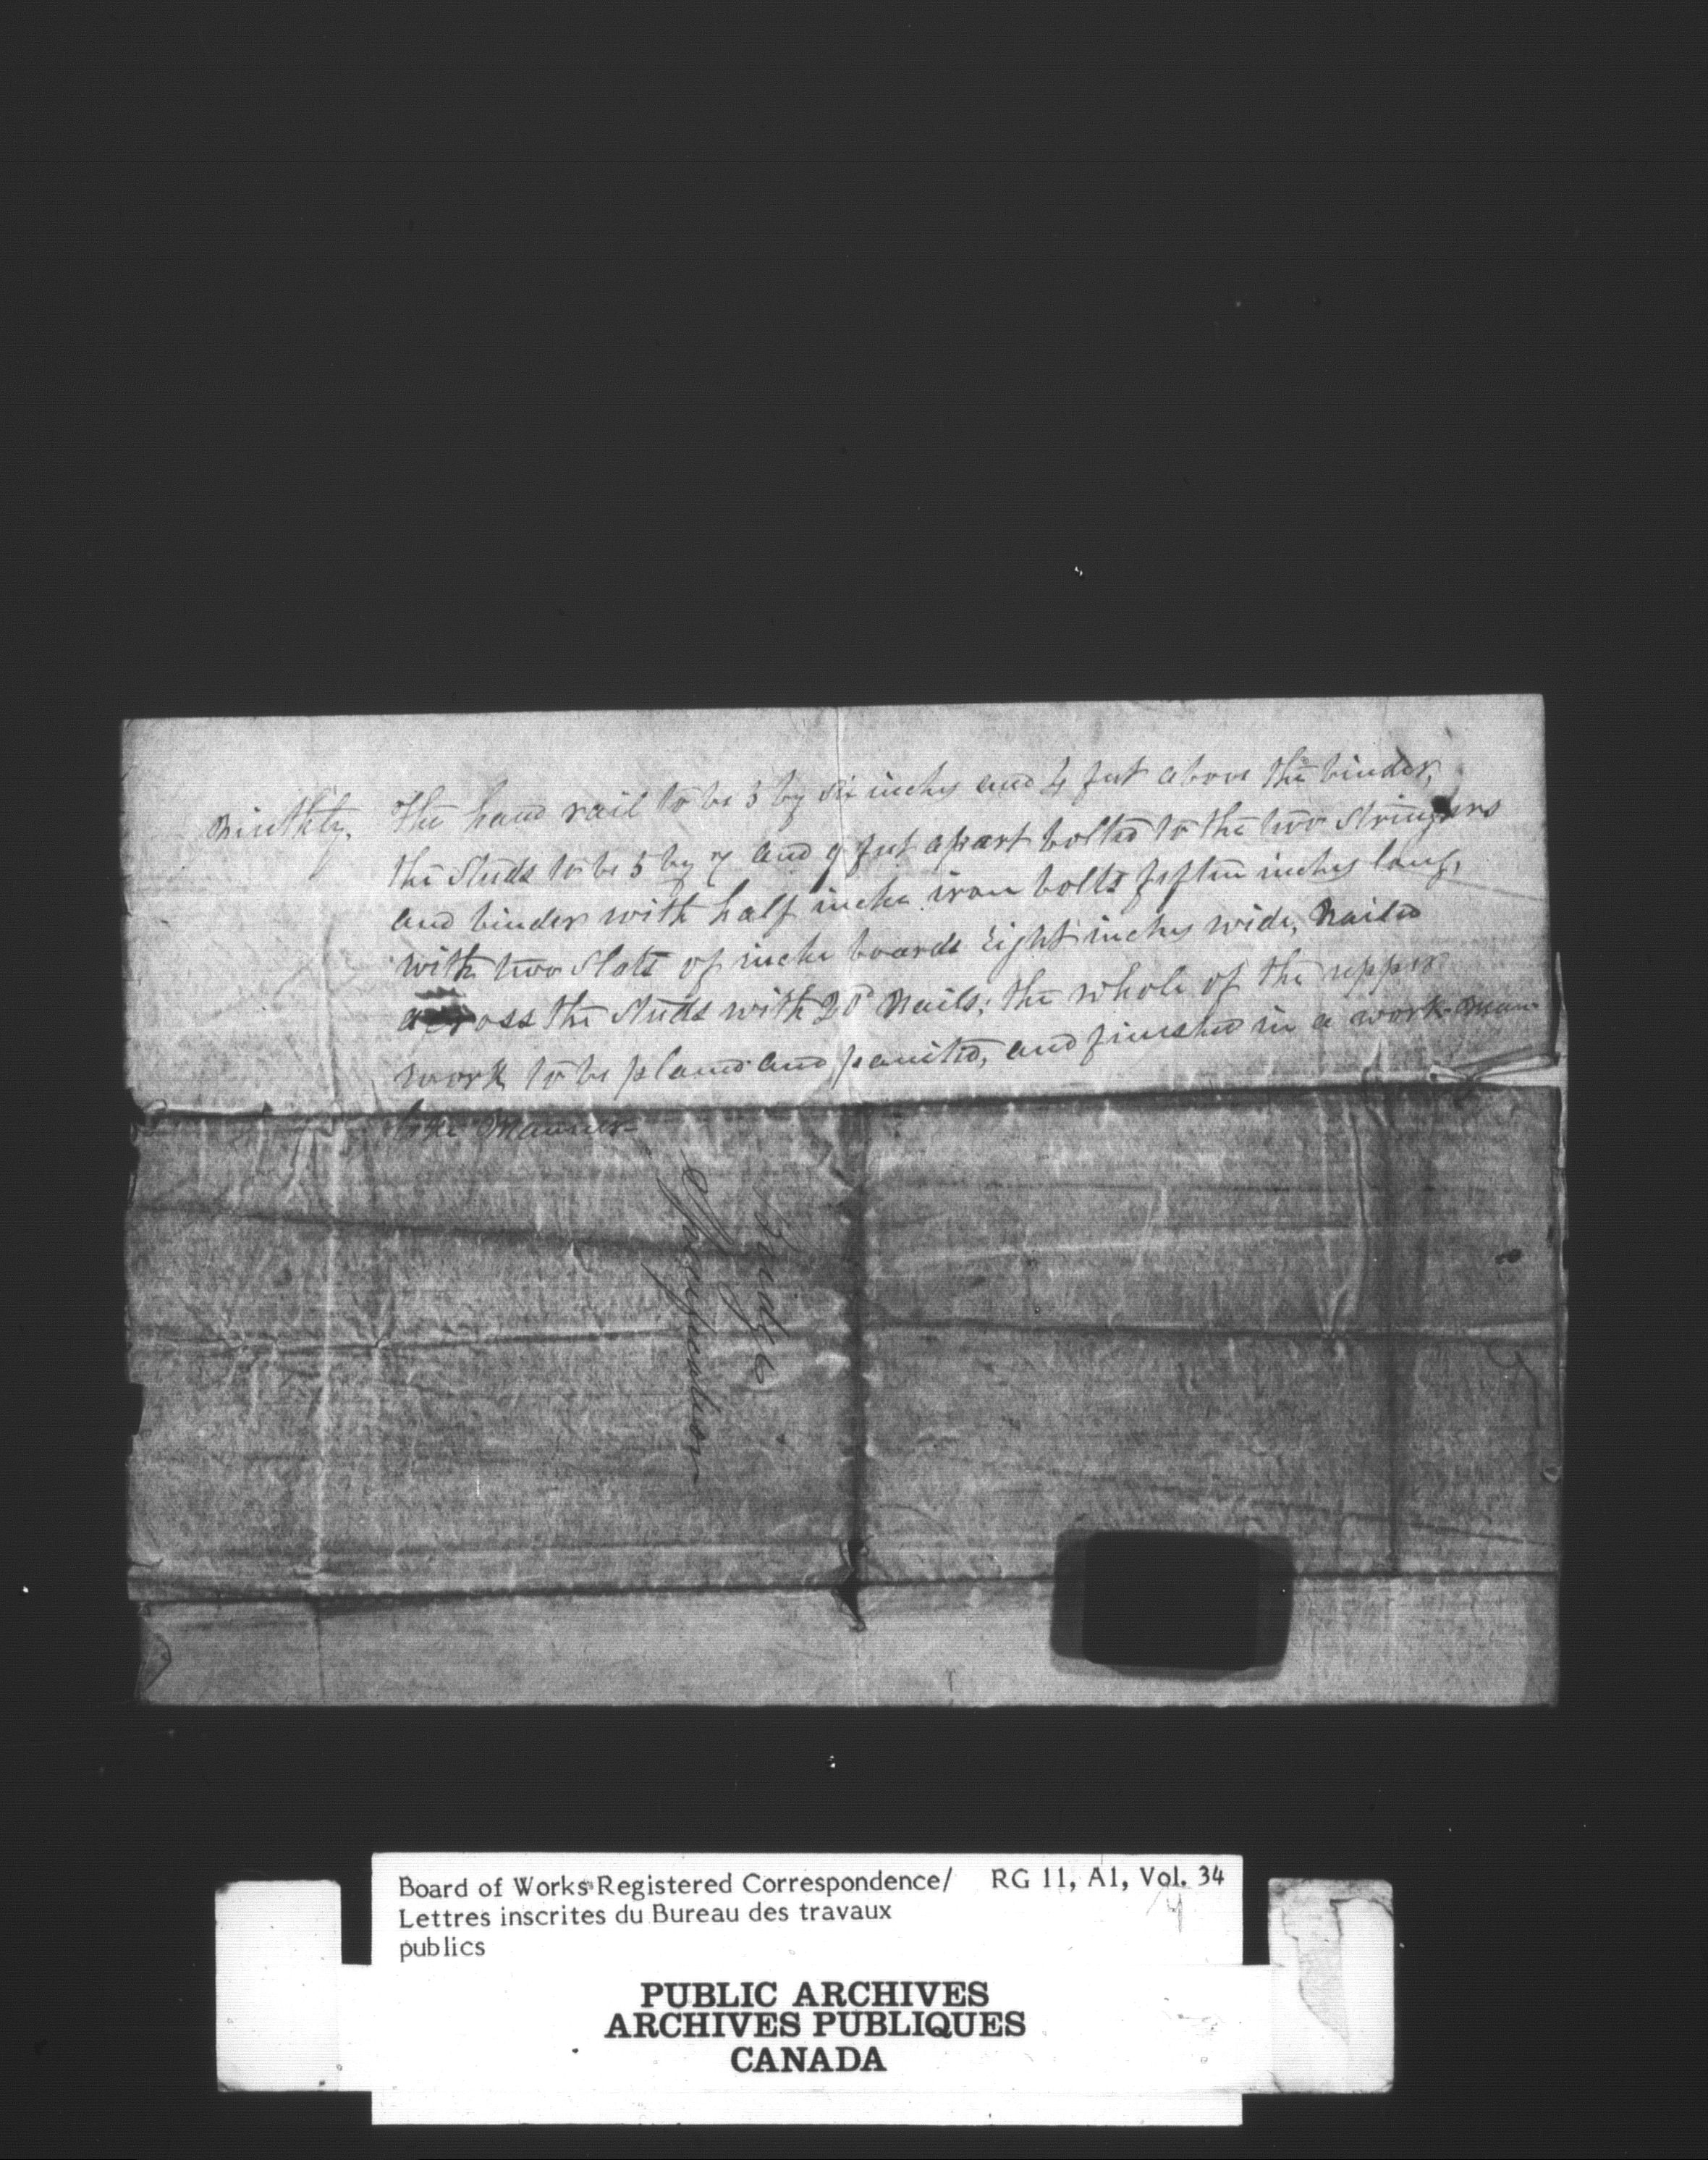 Ninthly. The hand rail to be 5 by six inches and 4 feet above the binder,
the Studs to be 5 by 7 and 9 feet apart bolted to the two Stringers
and binder with half inche iron bolts fiften inches long,
with two Slats of inche boards Eight inches wide, Nailed
across the Studs with 20d Nails; the whole of the upper
work to be plained and painted, and finished in a work-man-
like Manner
Bridge
Specification
Board of Works Registered Correspondence/ RG 11, A1, Vol. 34
Lettres inscrites du Bureau des travaux
publics
PUBLIC ARCHIVES
ARCHIVES PUBLIQUES
CANADA